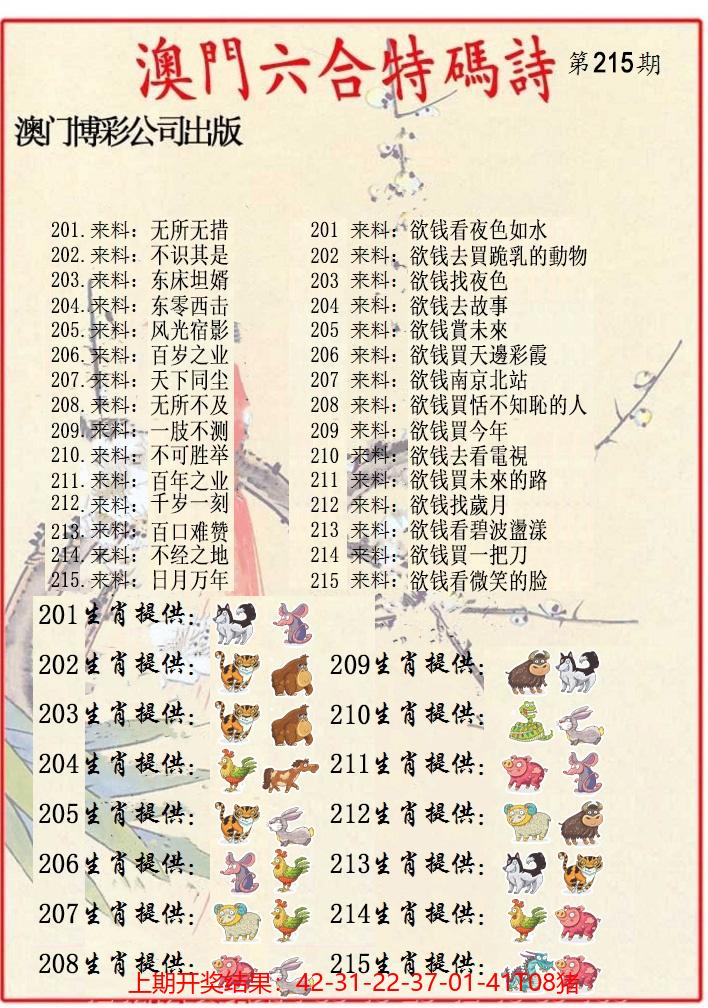 澳門六合特碼詩 第215期
澳门博彩公司出版
201.来料：无所无措
202.来料：不识其是
203.来料：东床坦婿
204.来料：东零西击
205.来料：风光宿影
206.来料：百岁之业
207.来料：天下同尘
208.来料：无所不及
209.来料：一肢不测
210.来料：不可胜举
211.来料：百年之业
212.来料：千岁一刻
213.来料：百口难赞
214.来料：不经之地
215.来料：日月万年
201 来料：欲钱看夜色如水
202 来料：欲钱去買跪乳的動物
203 来料：欲钱找夜色
204 来料：欲钱去故事
205 来料：欲钱賞未來
206 来料：欲钱買天邊彩霞
207 来料：欲钱南京北站
208 来料：欲钱買恬不知恥的人
209 来料：欲钱買今年
210 来料：欲钱去看電視
211 来料：欲钱買未來的路
212 来料：欲钱找歲月
213 来料：欲钱看碧波盪漾
214 来料：欲钱買一把刀
215 来料：欲钱看微笑的脸
201生肖提供：
202生肖提供：
203生肖提供：
204生肖提供：
205生肖提供：
206生肖提供：
207生肖提供：
208生肖提供：
209生肖提供：
210生肖提供：
211生肖提供：
212生肖提供：
213生肖提供：
214生肖提供：
215生肖提供：
上期开奖结果：42-31-22-37-01-41T08猪